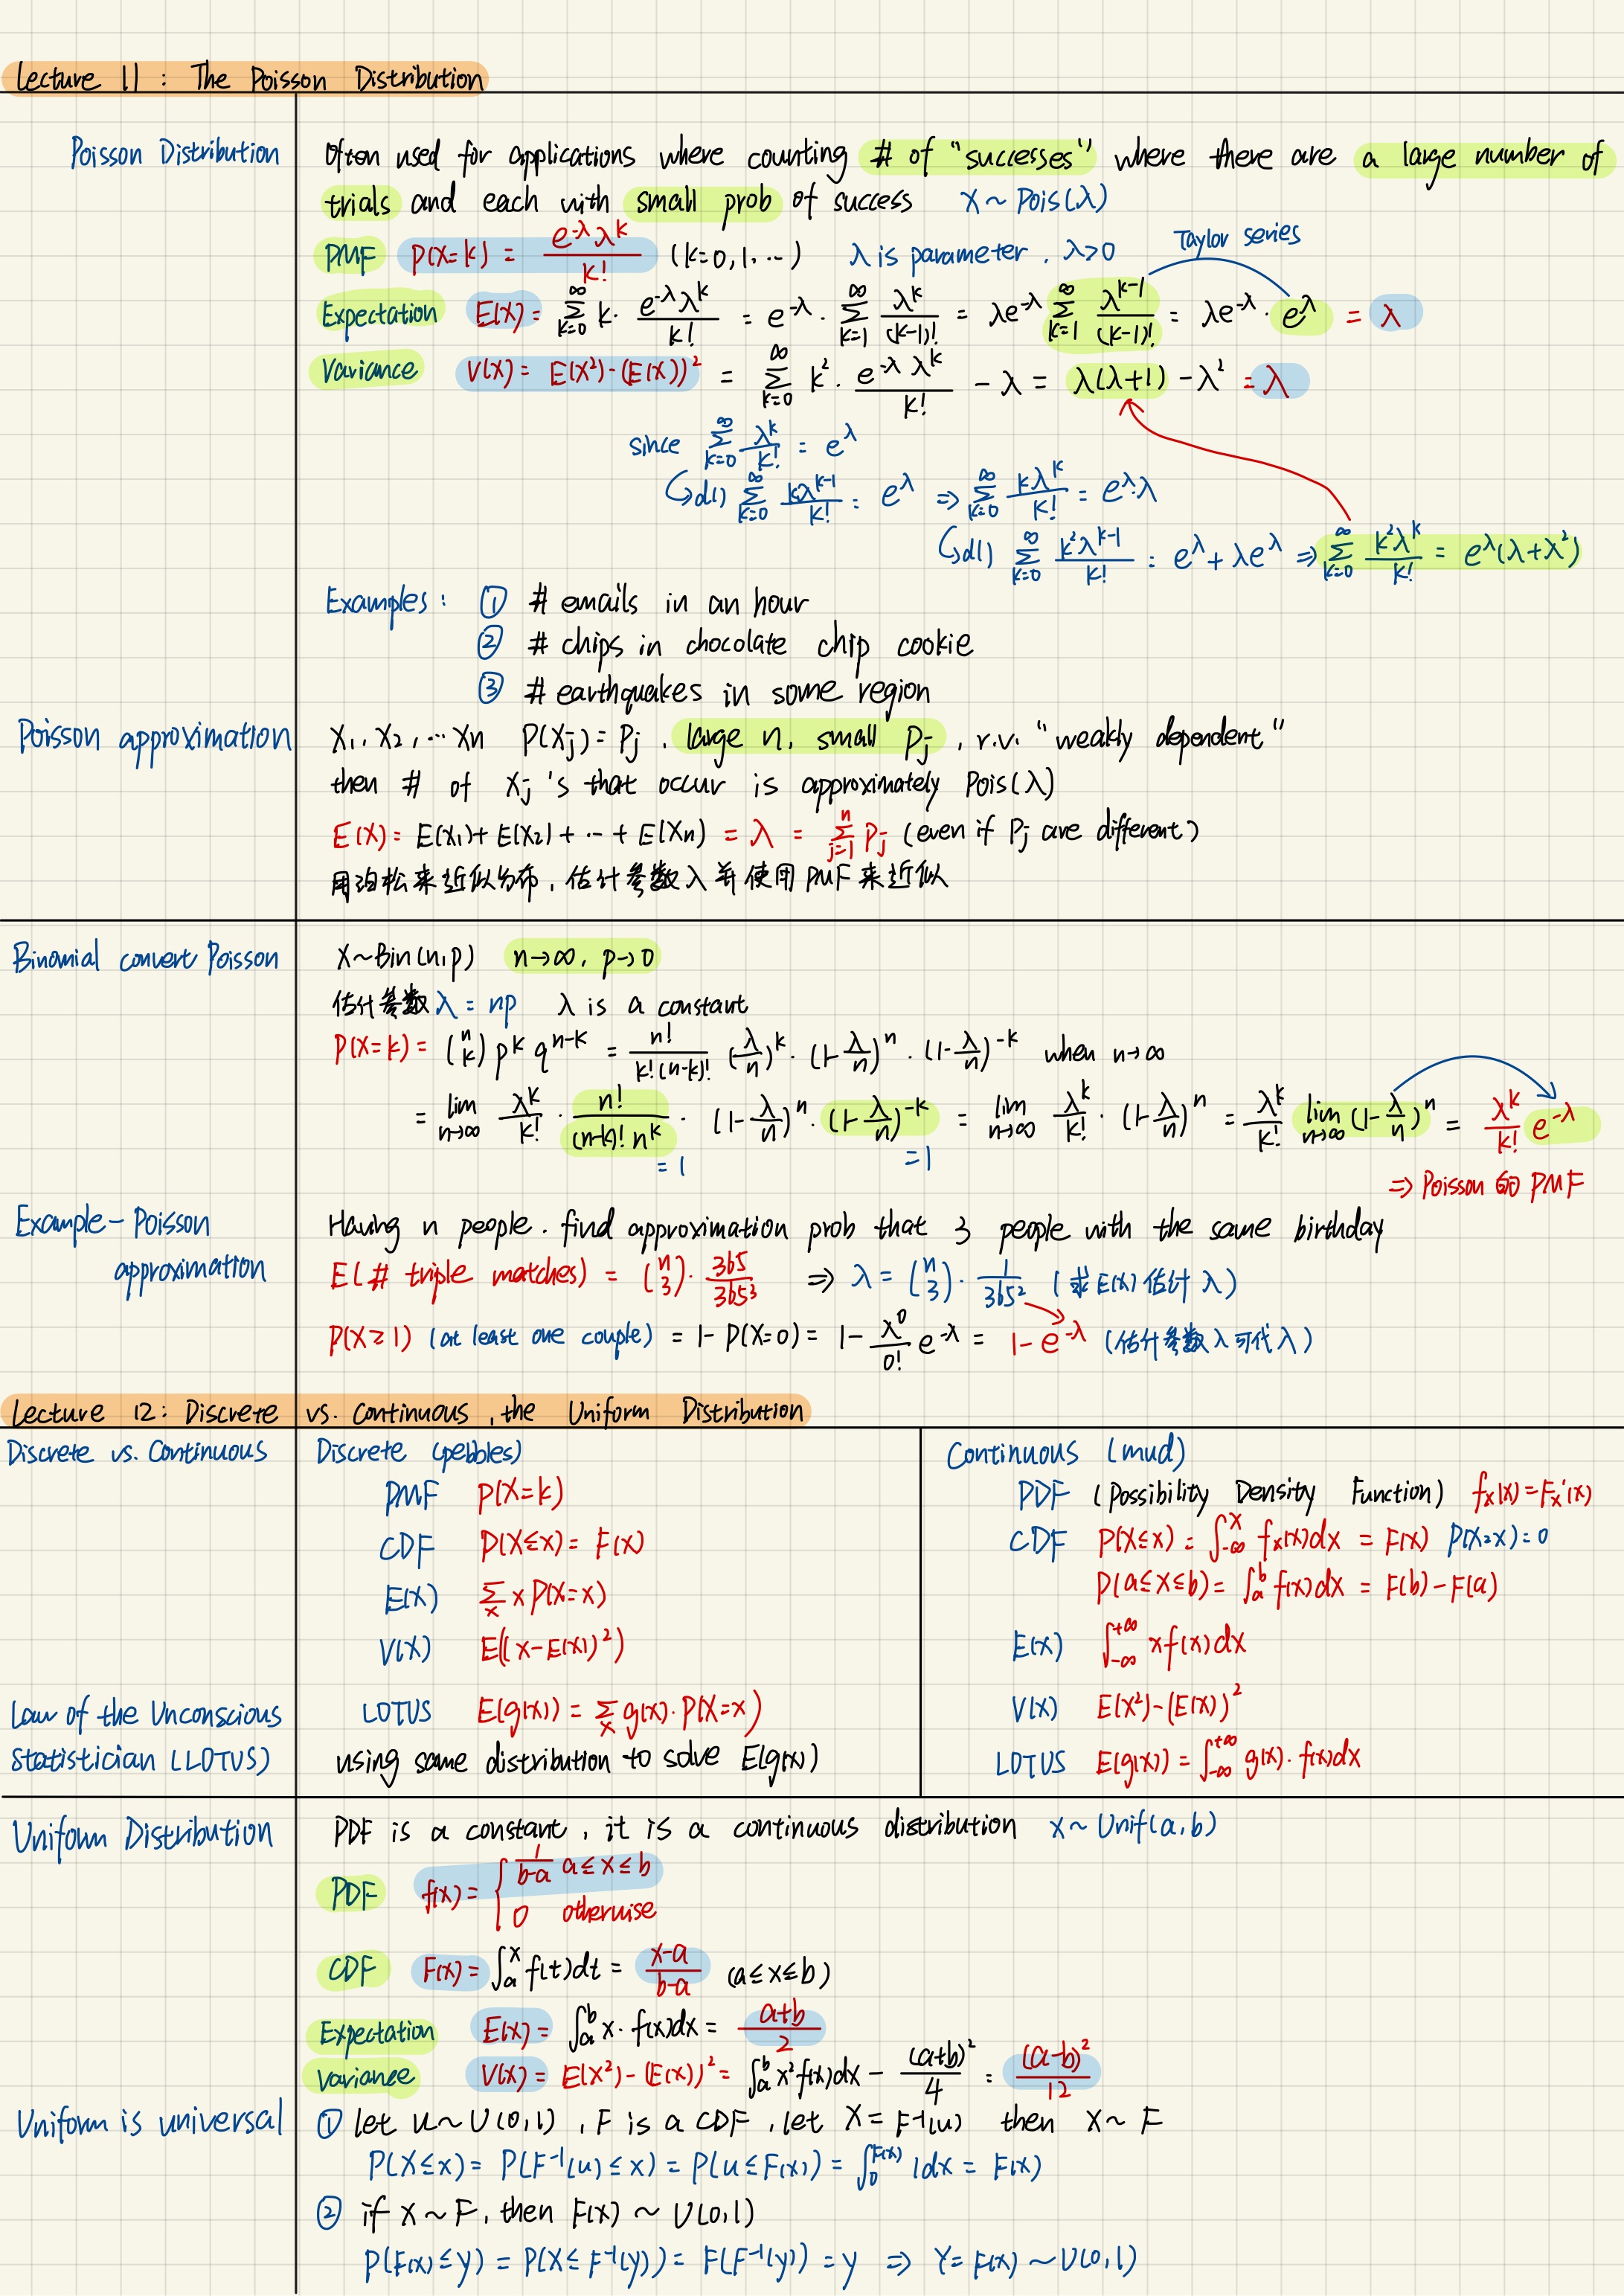 Lecture 11 : The Poisson Distribution
Poisson Distribution
Often used for applications where counting # of "successes" where there are a large number of
trials and each with small prob of success X ~ Pois(λ)
PMF P(X=k) = e^-λ λ^k / k! (k=0,1,...) λ is parameter, λ>0 Taylor series
Expectation E(X) = ∑_{k=0}^∞ k · e^-λ λ^k / k! = e^-λ · ∑_{k=1}^∞ λ^k / (k-1)! = λe^-λ ∑_{k=1}^∞ λ^{k-1} / (k-1)! = λe^-λ · e^λ = λ
Variance V(X) = E(X²)-(E(X))² = ∑_{k=0}^∞ k² · e^-λ λ^k / k! - λ = λ(λ+1) - λ² = λ
since ∑_{k=0}^∞ λ^k / k! = e^λ
d() ∑_{k=0}^∞ kλ^{k-1} / k! = e^λ ⇒ ∑_{k=0}^∞ kλ^k / k! = e^λ·λ
d() ∑_{k=0}^∞ k²λ^{k-1} / k! = e^λ + λe^λ ⇒ ∑_{k=0}^∞ k²λ^k / k! = e^λ(λ+λ²)
Examples: ① # emails in an hour
② # chips in chocolate chip cookie
③ # earthquakes in some region
Poisson approximation
X₁, X₂, ... Xn P(Xj) = Pj, large n, small Pj, r.v. "weakly dependent"
then # of Xj 's that occur is approximately Pois(λ)
E(X) = E(X₁) + E(X₂) + ... + E(Xn) = λ = ∑_{j=1}^n Pj (even if Pj are different)
用泊松来近似分布, 估计参数λ并使用PMF来近似
Binomial convert Poisson
X~Bin(n,p) n→∞, p→0
估计参数 λ = np λ is a constant
P(X=k) = (n k) p^k q^{n-k} = n! / k!(n-k)! (λ/n)^k · (1-λ/n)^n · (1-λ/n)^-k when n→∞
= lim_{n→∞} λ^k / k! · n! / (n-k)! n^k · (1-λ/n)^n · (1-λ/n)^-k = lim_{n→∞} λ^k / k! · (1-λ/n)^n = λ^k / k! lim_{n→∞} (1-λ/n)^n = λ^k / k! e^-λ
=1 =1
⇒ Poisson 的 PMF
Example - Poisson
approximation
Having n people. find approximation prob that 3 people with the same birthday
E(# triple matches) = (n 3) · 365 / 365³ ⇒ λ = (n 3) · 1 / 365² (求E(X)估计λ)
P(X≥1) (at least one couple) = 1 - P(X=0) = 1 - λ⁰ / 0! e^-λ = 1 - e^-λ (估计参数λ可代入)
Lecture 12: Discrete vs. Continuous, the Uniform Distribution
Discrete vs. Continuous
Discrete (pebbles)
PMF P(X=k)
CDF P(X≤x) = F(x)
E(X) ∑_x x P(X=x)
V(X) E((X-E(X))²)
Law of the Unconscious
Statistician (LOTUS)
LOTUS E(g(x)) = ∑_x g(x) · P(X=x)
using same distribution to solve E(g(x))
Continuous (mud)
PDF (Possibility Density Function) f_X(x) = F_X'(x)
CDF P(X≤x) = ∫_{-∞}^x f_X(x)dx = F(x) P(X=x)=0
P(a≤X≤b) = ∫_a^b f(x)dx = F(b)-F(a)
E(X) ∫_{-∞}^{+∞} x f(x)dx
V(X) E(X²)-(E(X))²
LOTUS E(g(x)) = ∫_{-∞}^{+∞} g(x) · f(x)dx
Uniform Distribution
PDF is a constant, it is a continuous distribution X~Unif(a,b)
PDF f(x) = { 1 / b-a a≤x≤b
0 otherwise
CDF F(x) = ∫_a^x f(t)dt = x-a / b-a (a≤x≤b)
Expectation E(X) = ∫_a^b x · f(x)dx = a+b / 2
Variance V(X) = E(X²)-(E(X))² = ∫_a^b x² f(x)dx - (a+b)² / 4 = (a-b)² / 12
Uniform is universal
① let u~U(0,1), F is a CDF, let X = F⁻¹(u) then X~F
P(X≤x) = P(F⁻¹(u)≤x) = P(u≤F(x)) = ∫_0^{F(x)} 1dx = F(x)
② if X~F, then F(x) ~ U(0,1)
P(F(x)≤y) = P(X≤F⁻¹(y)) = F(F⁻¹(y)) = y ⇒ Y=F(x) ~U(0,1)